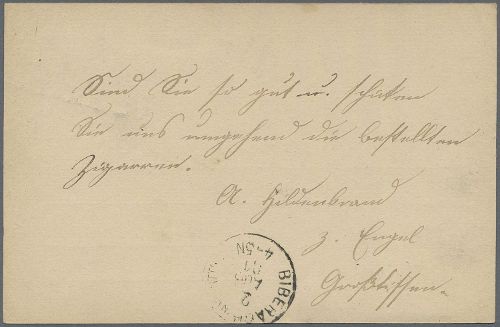 Sind Sie so gut u. schicken
Sie uns umgehend die bestellten
Zigarren.
A. Hildenbrand
z. Engel
Großtissen.
BIBERA
2
4-5N